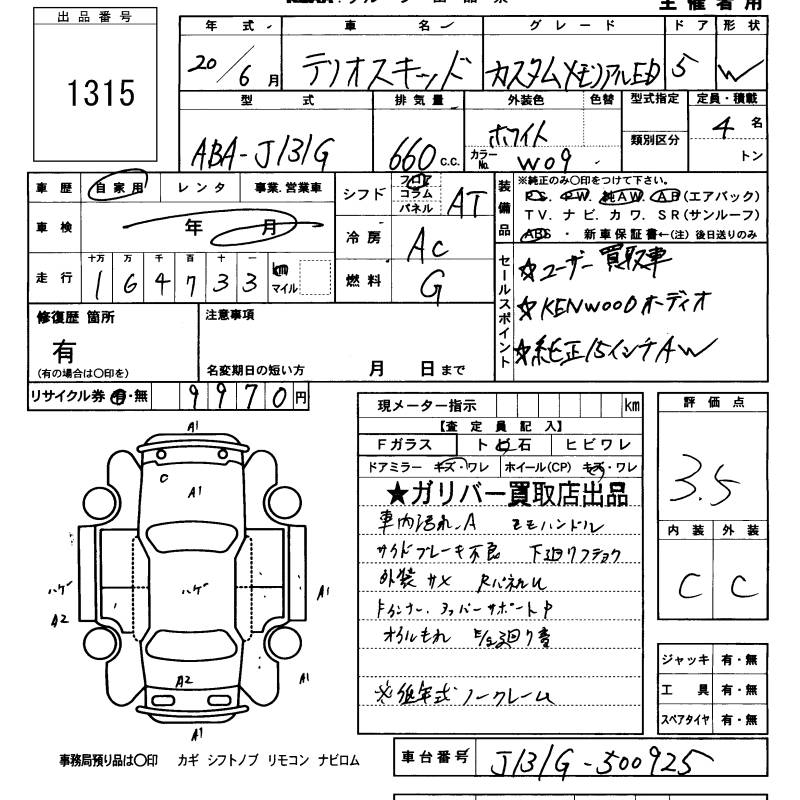 主催者用
出品番号
1315
年式 車名 グレード ドア 形状
20/6月 テリオスキッド カスタムメモリアルED 5 W
型式 排気量 外装色 色替 型式指定 定員・積載
ABA-J131G 660 c.c. ホワイト カラーNo. W09 類別区分 4名 トン
車歴 自家用 レンタ 事業.営業車
車検 年 月
走行 十万 万 千 百 十 一
1 6 4 7 3 3 km マイル
シフト フロア コラム パネル AT
冷房 AC
燃料 G
装備品
※純正のみ○印をつけて下さい。
P.S. P.W. 純AW. A.B(エアバック)
T.V. ナビ. カワ. S.R(サンルーフ)
ABS ・ 新車保証書←(注) 後日送りのみ
セールスポイント
☆ユーザー買取車
☆KENWOODオーディオ
☆純正15インチAW
修復歴 箇所
有
(有の場合は○印を)
注意事項
名変期日の短い方 月 日まで
リサイクル券 有・無 9970円
現メーター指示 km
【査定員記入】
Fガラス トビ石 ヒビワレ
ドアミラー キズ・ワレ ホイール(CP) キズ・ワレ
★ガリバー買取店出品
車内汚れ.A モモハンドル
サイドブレーキ不良 下廻りフショク
外装サメ RパネルU
オイルもれ
※低年式ノークレーム
評価点
3.5
内装 外装
C C
ジャッキ 有・無
工具 有・無
スペアタイヤ 有・無
A1
A1
ハゲ
ハゲ
A2
A1
A2
A1
A1
事務局預り品は○印 カギ シフトノブ リモコン ナビロム
車台番号 J131G-500925